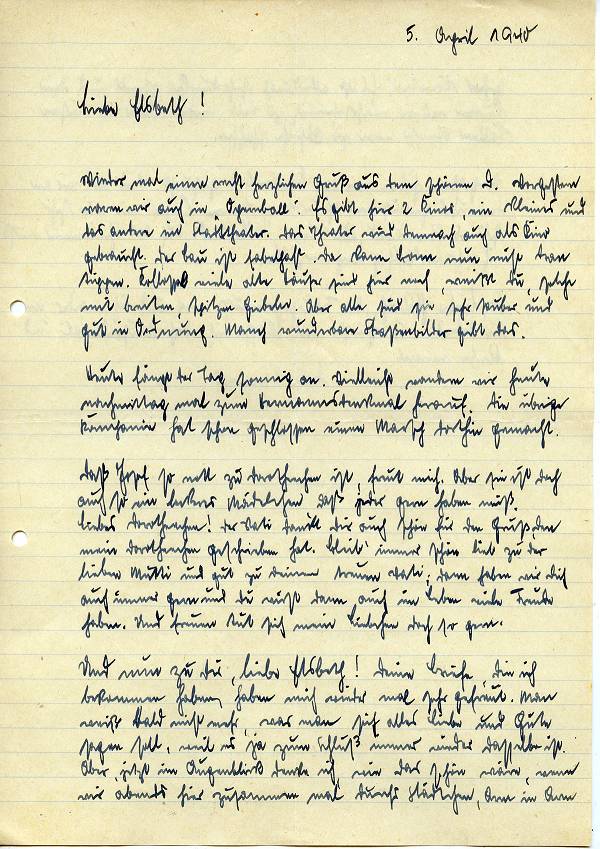 5. April 1940
Liebe Elsbeth!
Wieder mal einen recht herzlichen Gruß aus dem schönen D. Vorgestern
waren wir auch in „Opernball“. Es gibt hier 2 Kinos, ein kleines und
das andere im Stadttheater. Das Theater wird demnach auch als Kino
gebraucht. Der Bau ist fabelhaft. Da kann man nun nicht dran
tippen. Kolossal viele alte Häuser sind hier noch, weißt Du, solche
mit breiten, spitzen Giebeln. Aber alle sind sie sehr sauber und
gut in Ordnung. Manch wunderbare Straßenbilder gibt das.
Heute fängt der Tag sonnig an. Vielleicht wandern wir heute
nachmittag mal zum Hermannsdenkmal herauf. Die übrige
Kompanie hat schon geschlossen einen Marsch dorthin gemacht.
Daß Josef so nett zu Dorothechen ist, freut mich. Aber sie ist doch
auch so ein leckeres Mädelchen daß jeder gern haben muß.
Liebes Dorothechen! Der Vati dankt dir auch schön für den Gruß, den
mein Dorothechen geschrieben hat. Bleib' immer schön lieb zu der
lieben Mutti und gut zu deinem treuen Vati; dann haben wir dich
auch immer gern und du wirst dann auch im Leben viele Freude
haben. Und freuen tut sich mein Liebchen doch so gern.
Und nun zu dir, liebe Elsbeth! Deine Briefe, die ich
bekommen habe, haben mich wieder mal sehr gefreut. Man
weiß bald nicht mehr, was man sich alles Liebe und Gute
sagen soll, weil es ja zum Schluß immer wieder dasselbe ist.
Aber jetzt im Augenblick denke ich, wie das schön wäre, wenn
wir abends hier zusammen mal durchs Städtchen, Arm in Arm